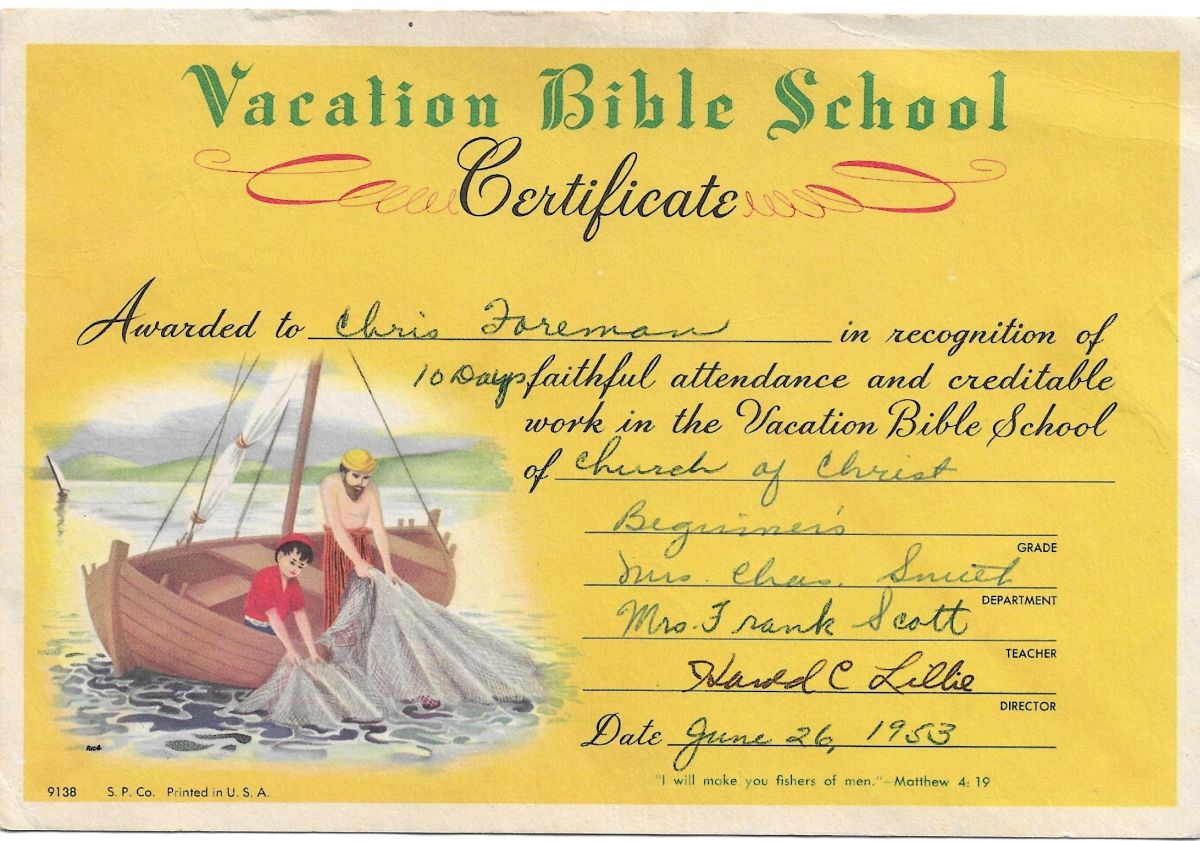 Vacation Bible School
Certificate
Awarded to Chris Foreman in recognition of
10 Days faithful attendance and creditable
work in the Vacation Bible School
of Church of Christ
Beginner's
GRADE
Mrs. Chas. Smith
DEPARTMENT
Mrs. Frank Scott
TEACHER
Harold C Lillie
DIRECTOR
Date June 26, 1953
"I will make you fishers of men."—Matthew 4: 19
9138 S. P. Co. Printed in U. S. A.